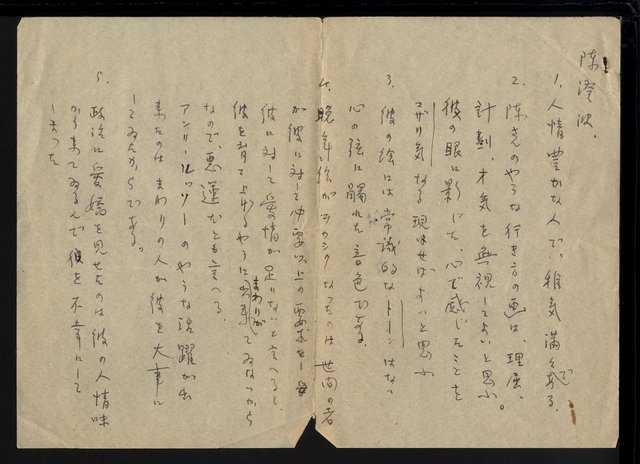 陳澄波、
1、人情豊かな人で、稚気満々である
で
2、陳さんのやうな行き方の画は、理屈、
計劃、才気を無視してよいと思ふ。
彼の眼に影じた、心で感じたことを
マザリ気なる現はせばよいと思ふ
3、彼の絵には常識的なトーンはない
心の弦に触れた音色である。
4、晩年に絵がカタクなったのは世間の者
が彼に対して必要以上の要求をし
彼に対して愛情が足りないと言へるし
彼を育て上げるやうに まわりが てゐなつから
なので、悪運だとも言へる。
アンリールッソーのやうな活躍が出
来たのはまわりの人が彼を大事に
してゐたからである。
5、政治に愛嬌を見せたのは彼の人情味
から来てゐるんで彼を不幸にして
しまった